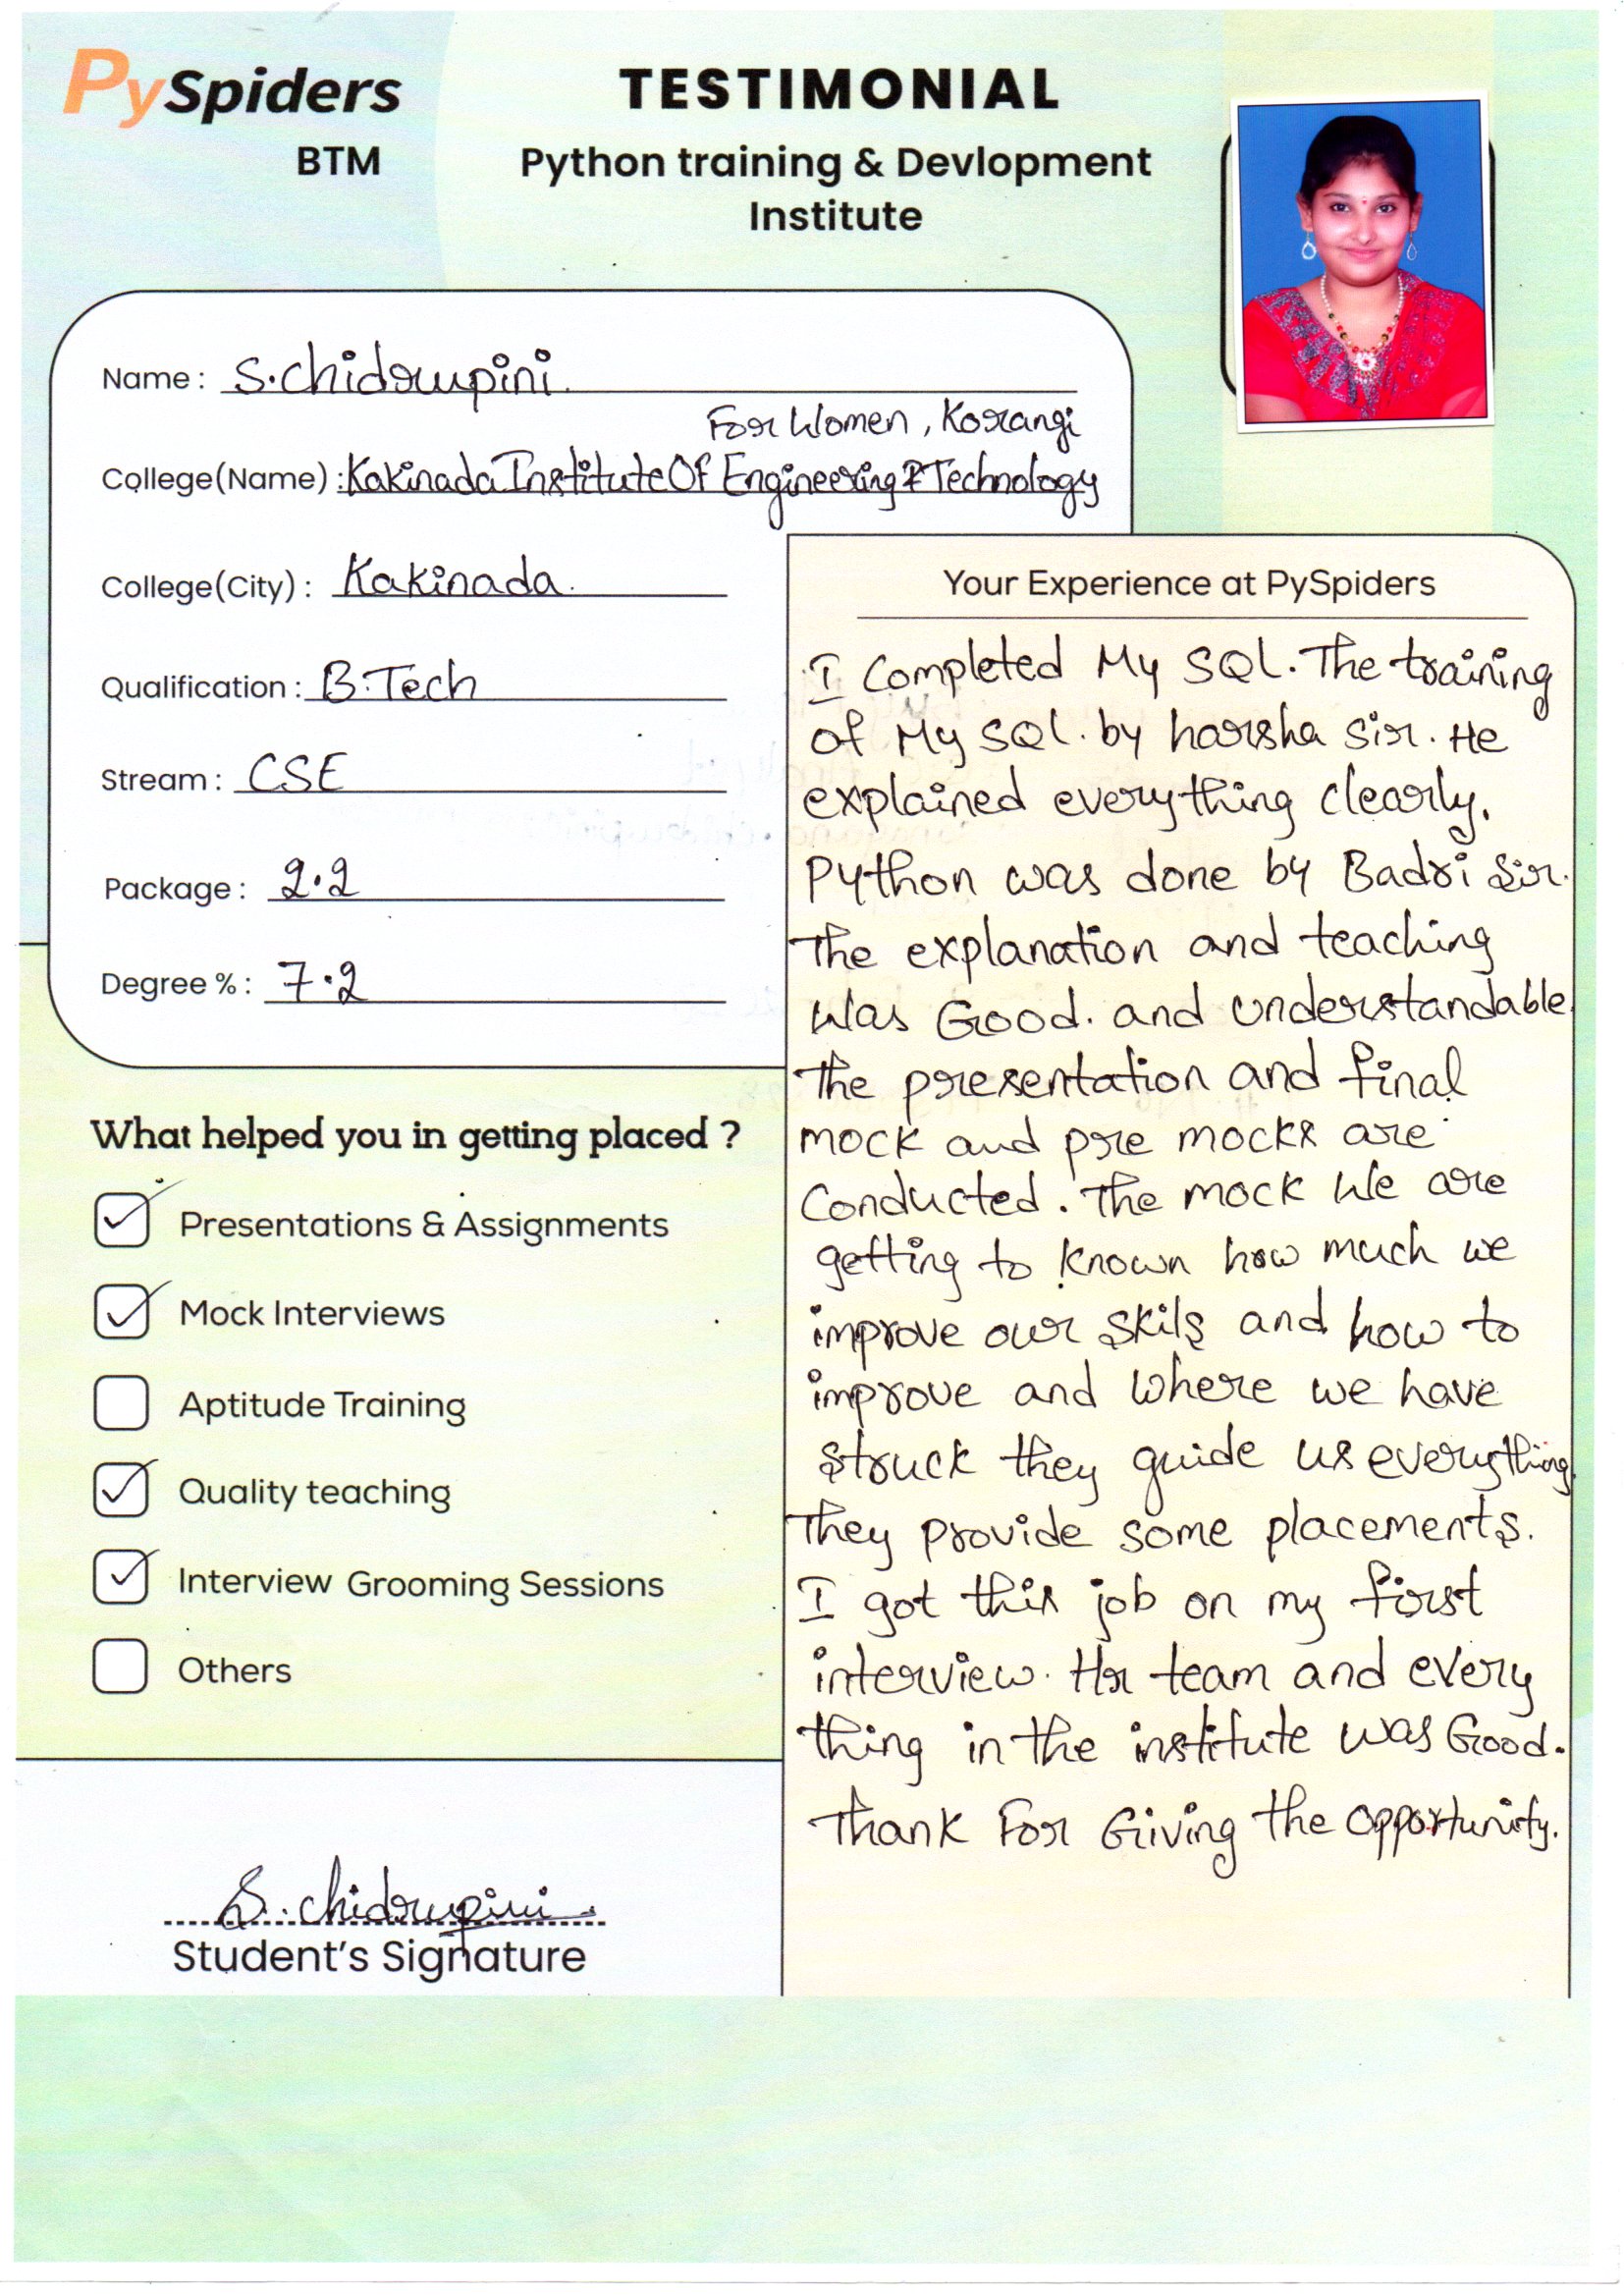 PySpiders
BTM
TESTIMONIAL
Python training & Devlopment
Institute
Name : S.chidrupini.
For Women, Korangi
College(Name) : Kakinada Institute Of Engineering & Technology
College(City) : Kakinada.
Qualification : B.Tech
Stream : CSE
Package : 2.2
Degree % : 7.2
What helped you in getting placed ?
Presentations & Assignments
Mock Interviews
Aptitude Training
Quality teaching
Interview Grooming Sessions
Others
S. chidrupini.
Student's Signature
Your Experience at PySpiders
I Completed My SQL. The training
of My SQL. by harsha sir. He
explained everything clearly.
Python was done by Badri Sir.
The explanation and teaching
Was Good. and understandable.
The presentation and final
mock and pre mocks are
Conducted. The mock We are
getting to known how much we
improve our skils and how to
improve and where we have
struck they guide us everything.
They provide some placements.
I got this job on my first
interview. Hr team and every
thing in the institute was Good.
Thank For Giving the opportunity.